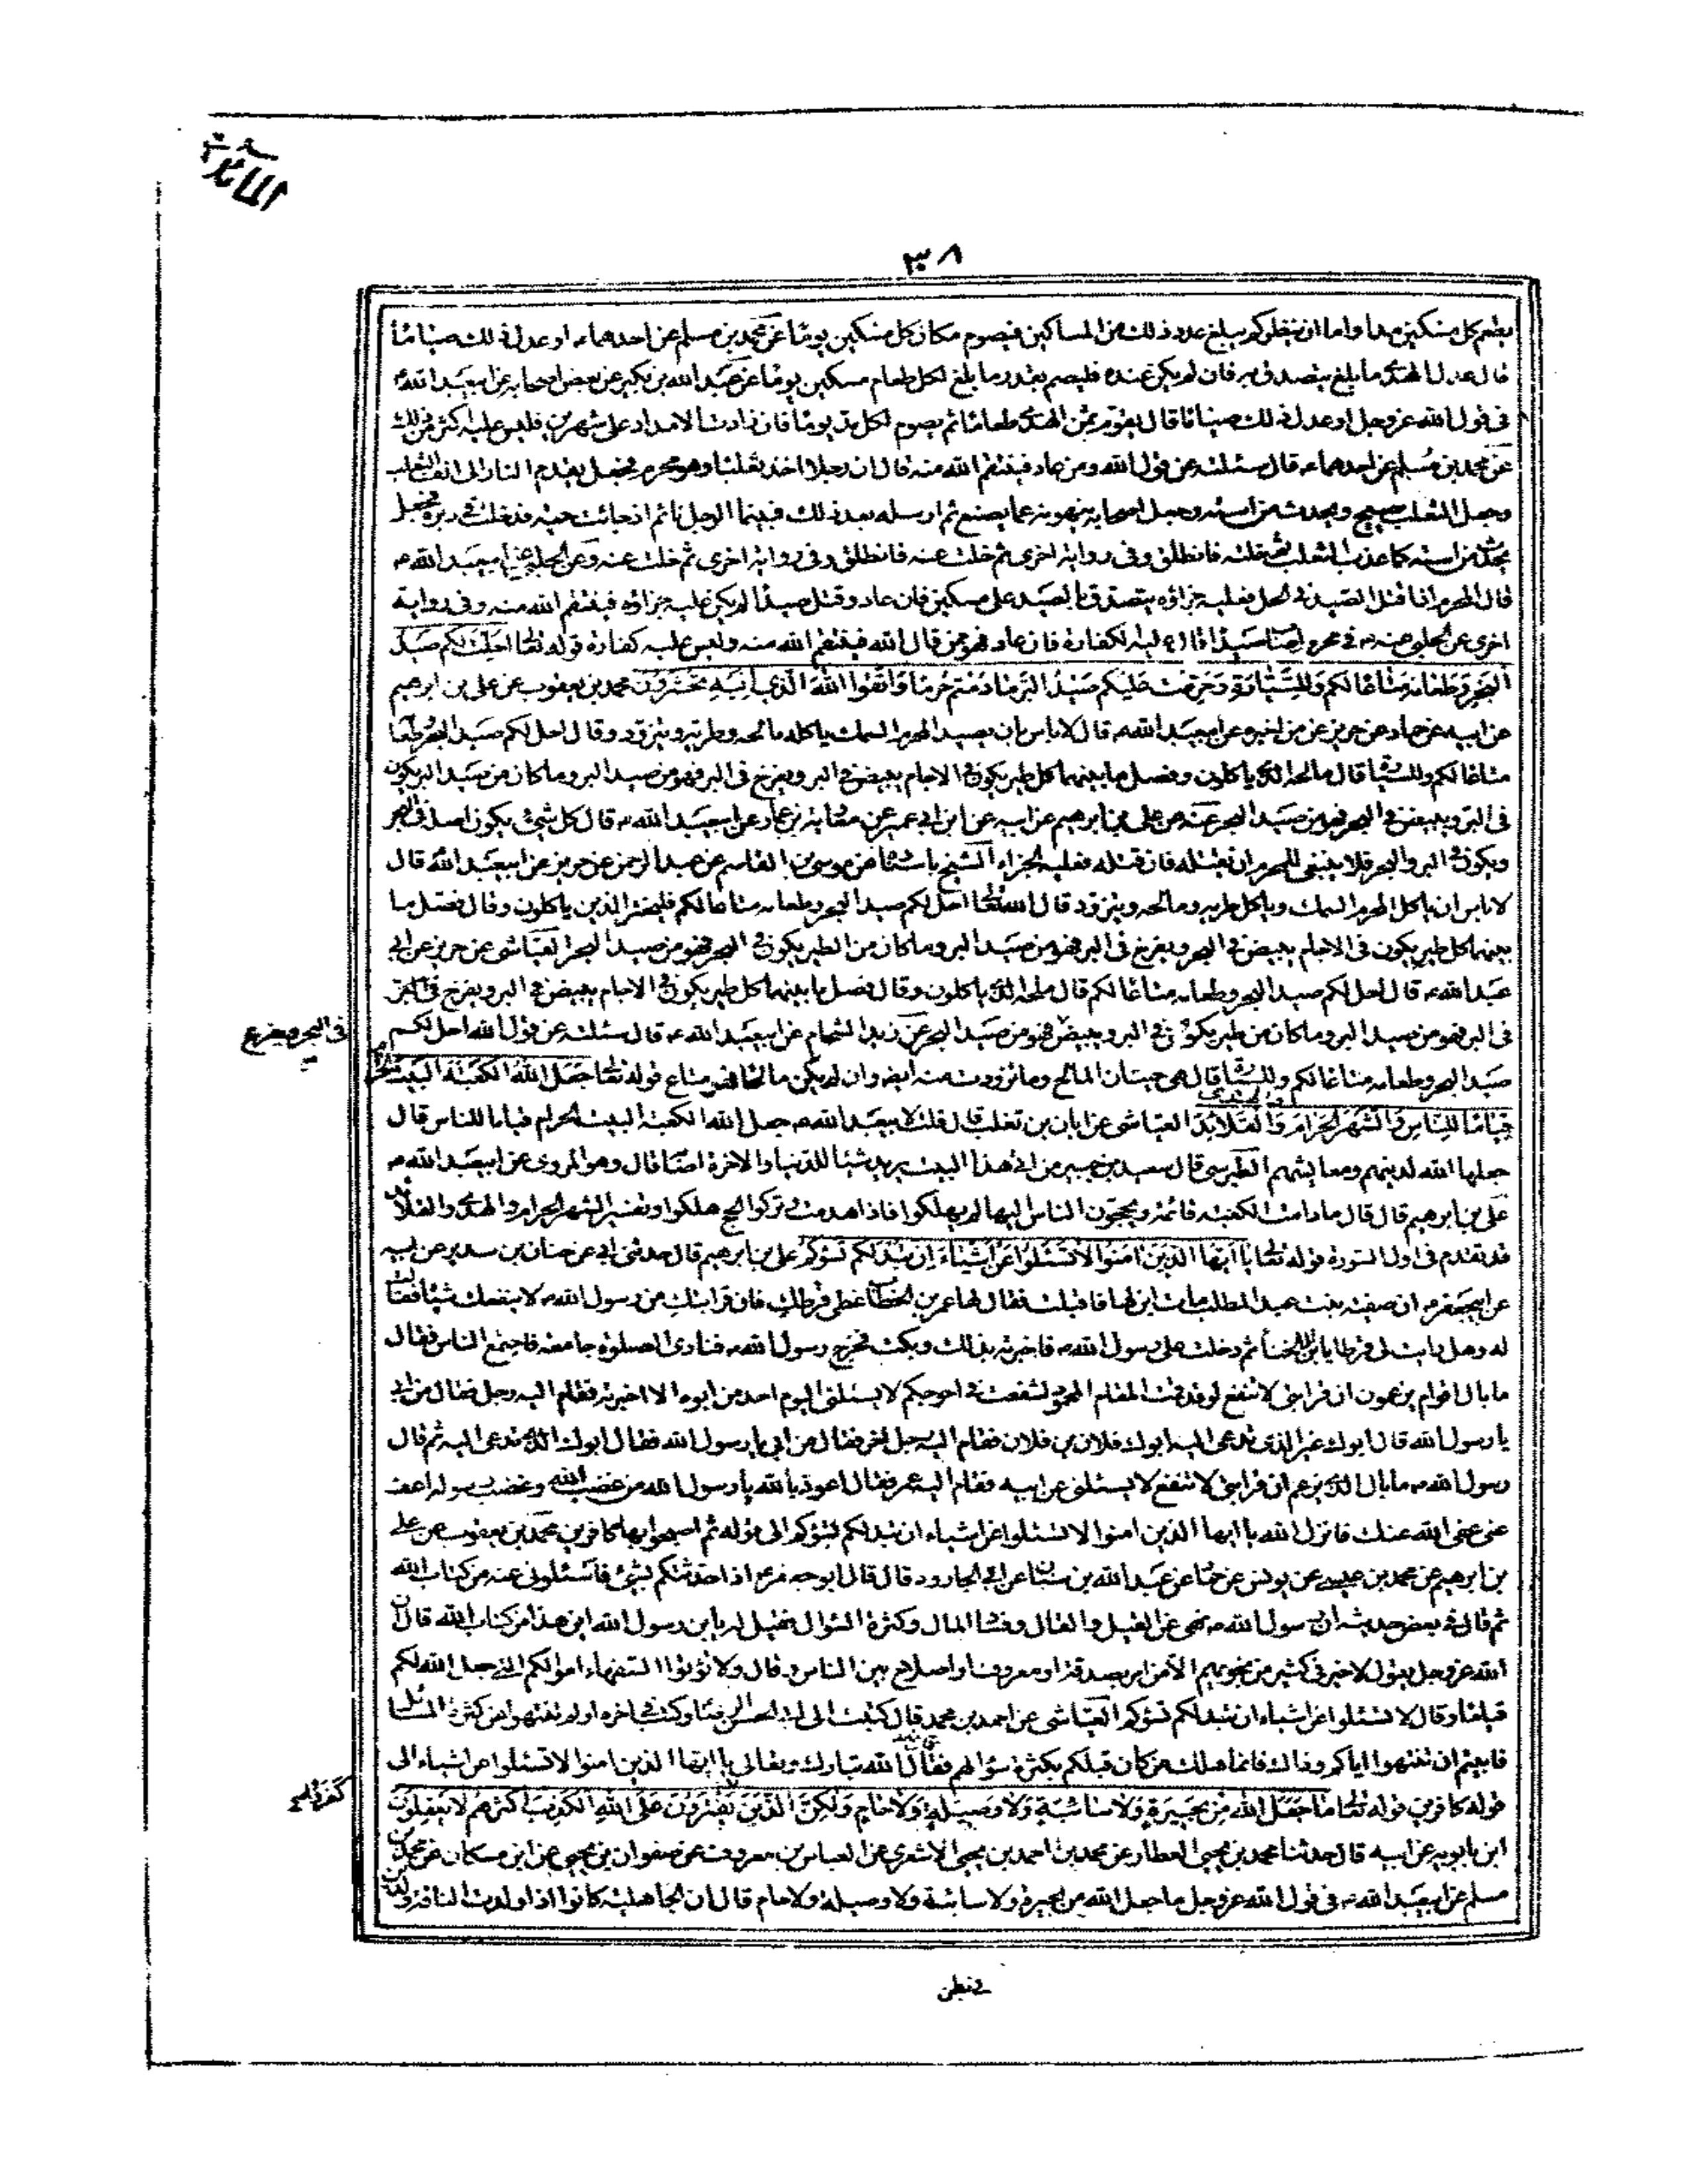 المائدة
٣٠٨
يطعم كل مسكين مدا واما ان ينظركم يبلغ عدد ذلك من المساكين فيصوم مكان كل مسكين يوما عن محمد بن مسلم عن احدهماء او عدل ذلك صياما
قال عدل الهدى ما بلغ يتصدق به فان لم يكن عنده فليصم بقدر ما بلغ لكل طعام مسكين يوما عن عبد الله بن بكير عن بعض اصحابه عن ابيعبد الله ع
فى قول الله عز وجل او عدل ذلك صياما قال يقوم ثمن الهدى طعاما ثم يصوم لكل مد يوما فان زادت الامداد على شهرين فليس عليه اكثر من ذلك
عن محمد بن مسلم عن احدهماء قال سئلته عن قول الله ومن عاد فينتقم الله منه قال ان رجلا اخذ ثعلبا وهو محرم فجعل يقدم النار الى انف الثعلب
وجعل الثعلب يصيح ويحدث من استه وجعل اصحابه ينهونه عما يصنع ثم ارسله بعد ذلك فبينما الرجل نائم اذ جائت حية فدخلت فى دبره فجعل
يحدث من استه كما عذب الثعلب ثم خلته فانطلق وفى رواية اخرى ثم خلت عنه فانطلق وفى رواية اخرى ثم خلت عنه وعن الحلبى عن ابيعبد الله ع
قال المحرم اذا قتل الصيد فى الحل فعليه جزاؤه يتصدق بالصيد على مسكين فان عاد وقتل صيدا لم يكن عليه جزاؤه فينتقم الله منه وفى رواية
اخرى عن الحلبى عنه ع فى محرم اصاب صيدا قال عليه الكفارة فان عاد فهو ممن قال الله فينتقم الله منه وليس عليه كفارة قوله تعالى احل لكم صيد
البحر وطعامه متاعا لكم وللسيارة وحرمت عليكم صيد البر ما دمتم حرما واتقوا الله الذى اليه تحشرون محمد بن يعقوب عن على بن ابرهيم
عن ابيه عن حماد عن حريز عن من اخبره عن ابيعبد الله ع قال لا باس بان يصيد المحرم السمك ياكله مالحه وطريه ويتزود وقال احل لكم صيد البحر وطعامه
متاعا لكم وللسيارة قال مالحه الذى ياكلون وفصل ما بينهما كل طير يكون فى الاجام يبيض فى البر ويفرخ فى البر فهو من صيد البر وما كان من صيد البر يكون
فى البر ويبيض فى البحر فهو من صيد البحر عنه عن على بن ابرهيم عن ابيه عن ابن ابى عمير عن معاوية بن عمار عن ابيعبد الله ع قال كل شىء يكون اصله فى البحر
ويكون فى البر والبحر فلا ينبغى للمحرم ان يقتله فان قتله فعليه الجزاء الشيخ باسناده عن موسى بن القاسم عن عبد الرحمن عن حريز عن ابيعبد الله قال
لا باس ان ياكل المحرم السمك وياكل طريه ومالحه ويتزود قال الله تعالى احل لكم صيد البحر وطعامه متاعا لكم فليختر الذين ياكلون وقال فصل ما
بينهما كل طير يكون فى الاجام يبيض فى البحر ويفرخ فى البر فهو من صيد البر وما كان من الطير يكون فى البحر فهو من صيد البحر العياشى عن حريز عن ابى
عبد الله ع قال احل لكم صيد البحر وطعامه متاعا لكم قال مالحه الذى ياكلون وقال فصل ما بينهما كل طير يكون فى الاجام يبيض فى البر ويفرخ فى البر
فى البر فهو من صيد البر وما كان من طير يكون فى البر ويبيض فهو من صيد البحر عن زيد الشحام عن ابيعبد الله ع قال سئلته عن قول الله احل لكم
فى البحر ويفرخ
صيد البحر وطعامه متاعا لكم وللسيارة قال هى حيتان المالح وما تزودت منه ايضا وان لم يكن مالحا فهو متاع قوله تعالى جعل الله الكعبة البيت الحرام
قياما للناس والشهر الحرام والقلائد العياشى عن ابان بن تغلب قال قلت لابيعبد الله ع جعل الله الكعبة البيت الحرام قياما للناس قال
جعلها الله لدينهم ومعايشهم الطبرسى قال سعيد بن جبير من اتى هذا البيت يريد شيئا للدنيا والاخرة اصابه قال وهو المروى عن ابيعبد الله ع
على بن ابرهيم قال قال ما دامت الكعبة قائمة ويحجون الناس اليها لم يهلكوا فاذا هدمت وتركوا الحج هلكوا وتفسير الشهر الحرام والهدى والقلائد
قد تقدم فى اول السورة قوله تعالى يا ايها الذين امنوا لا تسئلوا عن اشياء ان تبد لكم تسؤكم على بن ابرهيم قال حدثنى ابى عن حنان بن سدير عن ابيه
عن ابيجعفر ع ان صفية بنت عبد المطلب مات ابن لها فاقبلت فقال لها عمر بن الخطاب غطى قرطك فان قرابتك من رسول الله ص لا ينفعك شيئا فقالت
له وهل رايت لى قرطا يا بن اللخناء ثم دخلت على رسول الله ص فاخبرته بذلك وبكت فخرج رسول الله ص فنادى الصلوة جامعة فاجتمع الناس فقال
ما بال اقوام يزعمون ان قرابتى لا تنفع لو قد قمت المقام المحمود لشفعت فى احوجكم لا يسئلنى اليوم احد من ابوه الا اخبرته فقام اليه رجل فقال من ابى
يا رسول الله قال ابوك غير الذى تدعى اليه ابوك فلان بن فلان فقام اليه رجل اخر فقال من ابى يا رسول الله فقال ابوك الذى تدعى اليه ثم قال
رسول الله ص ما بال الذى يزعم ان قرابتى لا تنفع لا يسئلنى عن ابيه فقام اليه عمر فقال اعوذ بالله يا رسول الله من غضب الله وغضب رسوله اعف
عنى عفى الله عنك فانزل الله يا ايها الذين امنوا لا تسئلوا عن اشياء ان تبد لكم تسؤكم الى قوله ثم اصبحوا بها كافرين محمد بن يعقوب عن على
بن ابرهيم عن محمد بن عيسى عن يونس عن حماد عن عبد الله بن سنان عن ابى الجارود قال قال ابو جعفر ع اذا حدثتكم بشىء فاسئلونى عنه من كتاب الله
ثم قال فى بعض حديثه ان رسول الله ص نهى عن القيل والقال وفساد المال وكثرة السؤال فقيل له يا بن رسول الله اين هذا من كتاب الله قال ان
الله عز وجل يقول لا خير فى كثير من نجويهم الا من امر بصدقة او معروف او اصلاح بين الناس وقال ولا تؤتوا السفهاء اموالكم التى جعل الله لكم
قياما وقال لا تسئلوا عن اشياء ان تبد لكم تسؤكم العياشى عن احمد بن محمد قال كتبت الى ابى الحسن الرضا وكتب فى اخره او لم تنتهوا عن كثرة المسائل
فابيتم ان تنتهوا اياكم وذاك فانما هلك من كان قبلكم بكثرة سؤالهم فقال الله تبارك وتعالى يا ايها الذين امنوا لا تسئلوا عن اشياء الى
قوله كافرين قوله تعالى ما جعل الله من بحيرة ولا سائبة ولا وصيلة ولا حام ولكن الذين كفروا يفترون على الله الكذب واكثرهم لا يعقلون
ابن بابويه عن ابيه قال حدثنا محمد بن يحيى العطار عن محمد بن احمد بن يحيى الاشعرى عن العباس بن معروف عن صفوان بن يحيى عن ابن مسكان عن محمد بن
مسلم عن ابيعبد الله ع فى قول الله عز وجل ما جعل الله من بحيرة ولا سائبة ولا وصيلة ولا حام قال ان اهل الجاهلية كانوا اذا ولدت الناقة ولدين
فى بطن